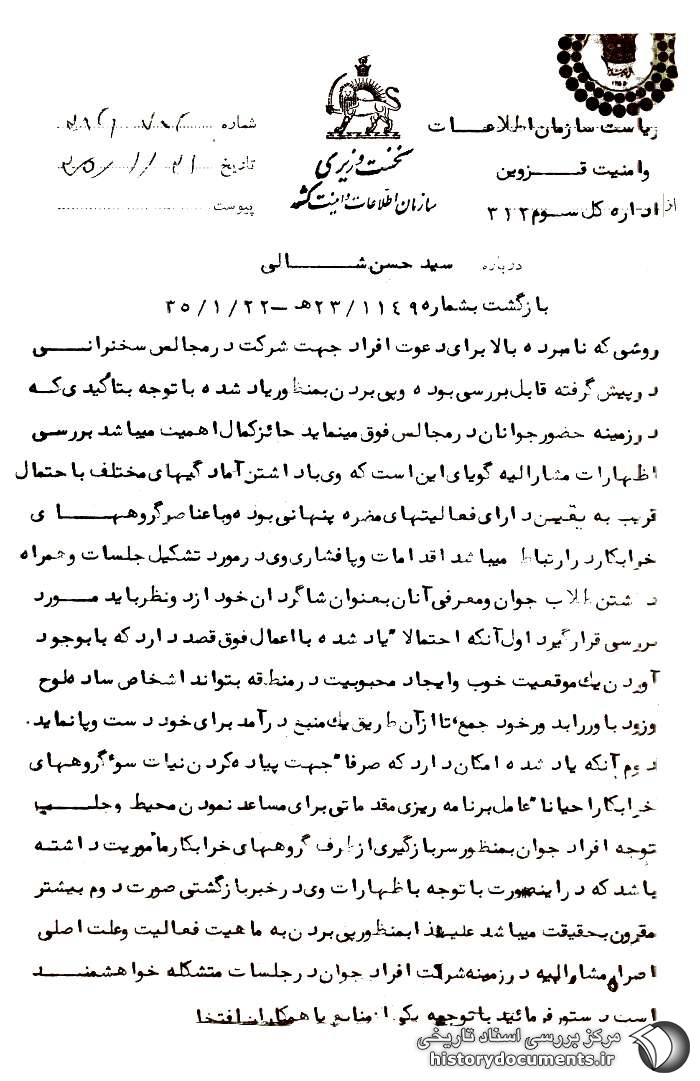 ریاست سازمان اطلاعات
وامنیت قزوین
از اداره کل سوم ۳۱۲
نخست وزیری
سازمان اطلاعات و امنیت کشور
شماره
تاریخ
پیوست
درباره سید حسن شالی
بازگشت بشماره ۲۳/۱۱۴۹۵هـ – ۳۵/۱/۲۲
روشی که نامبرده بالا برای دعوت افراد جهت شرکت در مجالس سخنرانی
در پیش گرفته قابل بررسی بوده وپی بردن بمنظور یاد شده با توجه بتاکیدی که
در زمینه حضور جوانان در مجالس فوق مینماید حائز کمال اهمیت میباشد بررسی
اظهارات مشارالیه گویای این است که وی با داشتن آمادگیهای مختلف باحتمال
قریب به یقین دارای فعالیتهای مضره پنهانی بوده وبا عناصر گروههای
خرابکار در ارتباط میباشد اقدامات وپافشاری وی در مورد تشکیل جلسات وهمراه
داشتن طلاب جوان ومعرفی آنان بعنوان شاگردان خود از دو نظر باید مورد
بررسی قرار گیرد اول آنکه احتمالا" یاد شده با اعمال فوق قصد دارد که با بوجود
آوردن یک موقعیت خوب وایجاد محبوبیت در منطقه بتواند اشخاص ساده لوح
وزود باور را بدور خود جمع، تا از آن طریق یک منبع درآمد برای خود دست وپا نماید.
دوم آنکه یاد شده امکان دارد که صرفا" جهت پیاده کردن نیات سوء گروههای
خرابکار احیانا" عامل برنامه ریزی مقدماتی برای مساعد نمودن محیط وجلب
توجه افراد جوان بمنظور سربازگیری از طرف گروههای خرابکار مأموریت داشته
باشد که در اینصورت با توجه باظهارات وی در خبر بازگشتی صورت دوم بیشتر
مقرون بحقیقت میباشد علیهذا بمنظور پی بردن به ماهیت فعالیت وعلت اصلی
اصرار مشارالیه در زمینه شرکت افراد جوان در جلسات متشکله خواهشمند
است دستور فرمائید با توجیه یکی از منابع یا همکاران افتخا
مرکز بررسی اسناد تاریخی
historydocuments.ir